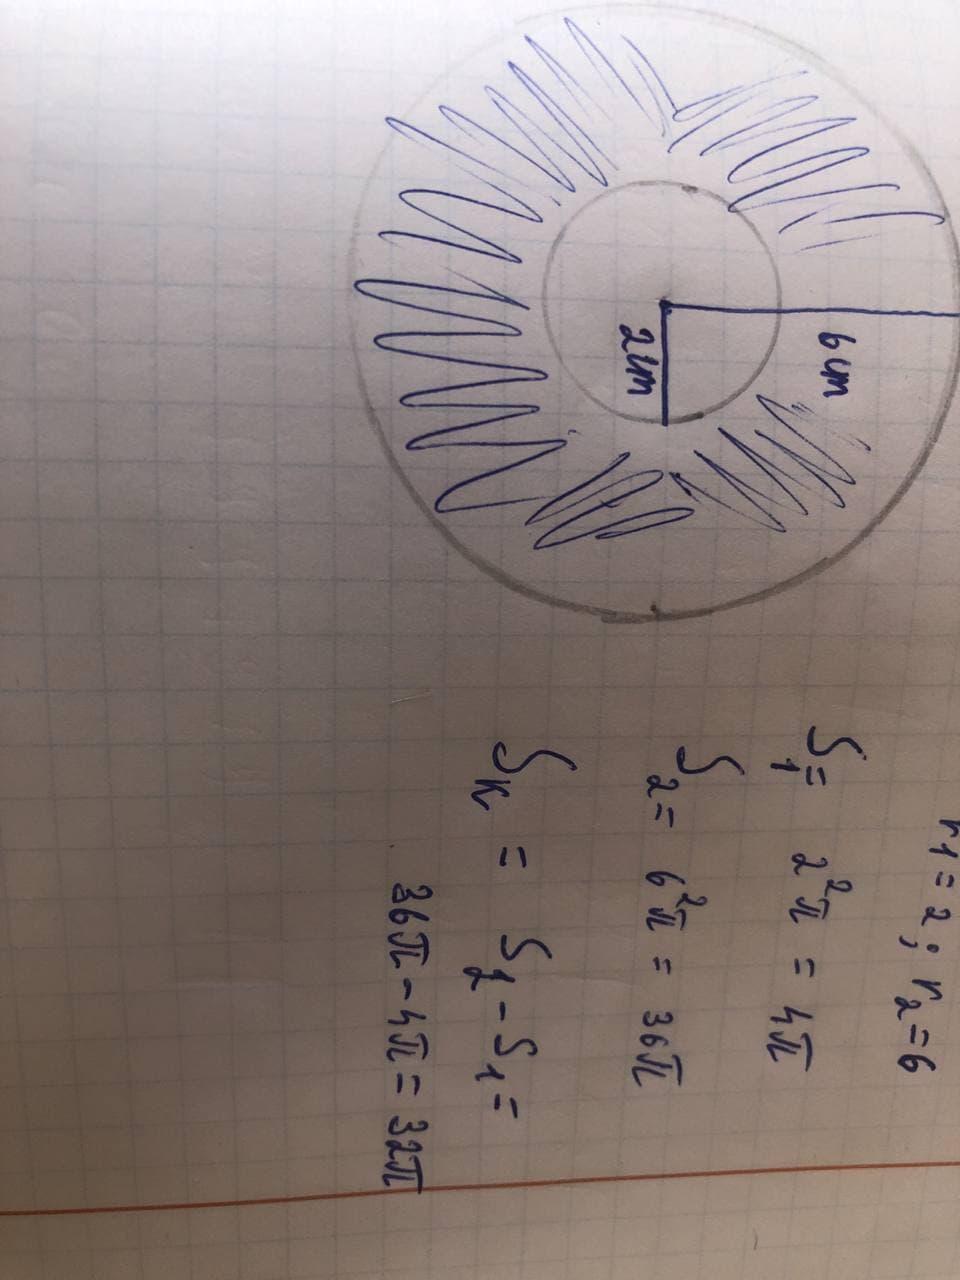 6 cm
2 cm
r1 = 2 ; r2 = 6
S1 = 2²π = 4π
S2 = 6²π = 36π
Sk = S2 - S1 =
36π - 4π = 32π